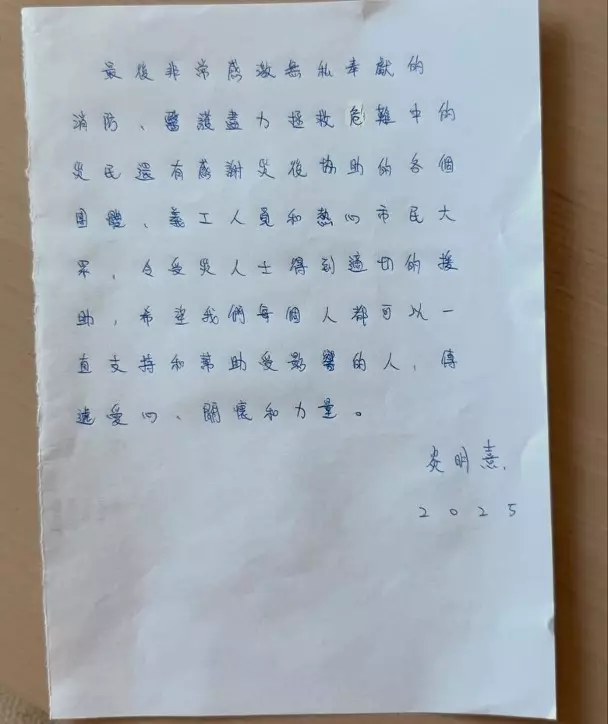 最後非常感激無私奉獻的
消防、醫護盡力拯救危難中的
災民還有感謝災後協助的各個
團體、義工人員和熱心市民大
眾，令受災人士得到適切的援
助，希望我們每個人都可以一
直支持和幫助受影響的人，傳
遞愛心、關懷和力量。
明熹
2025